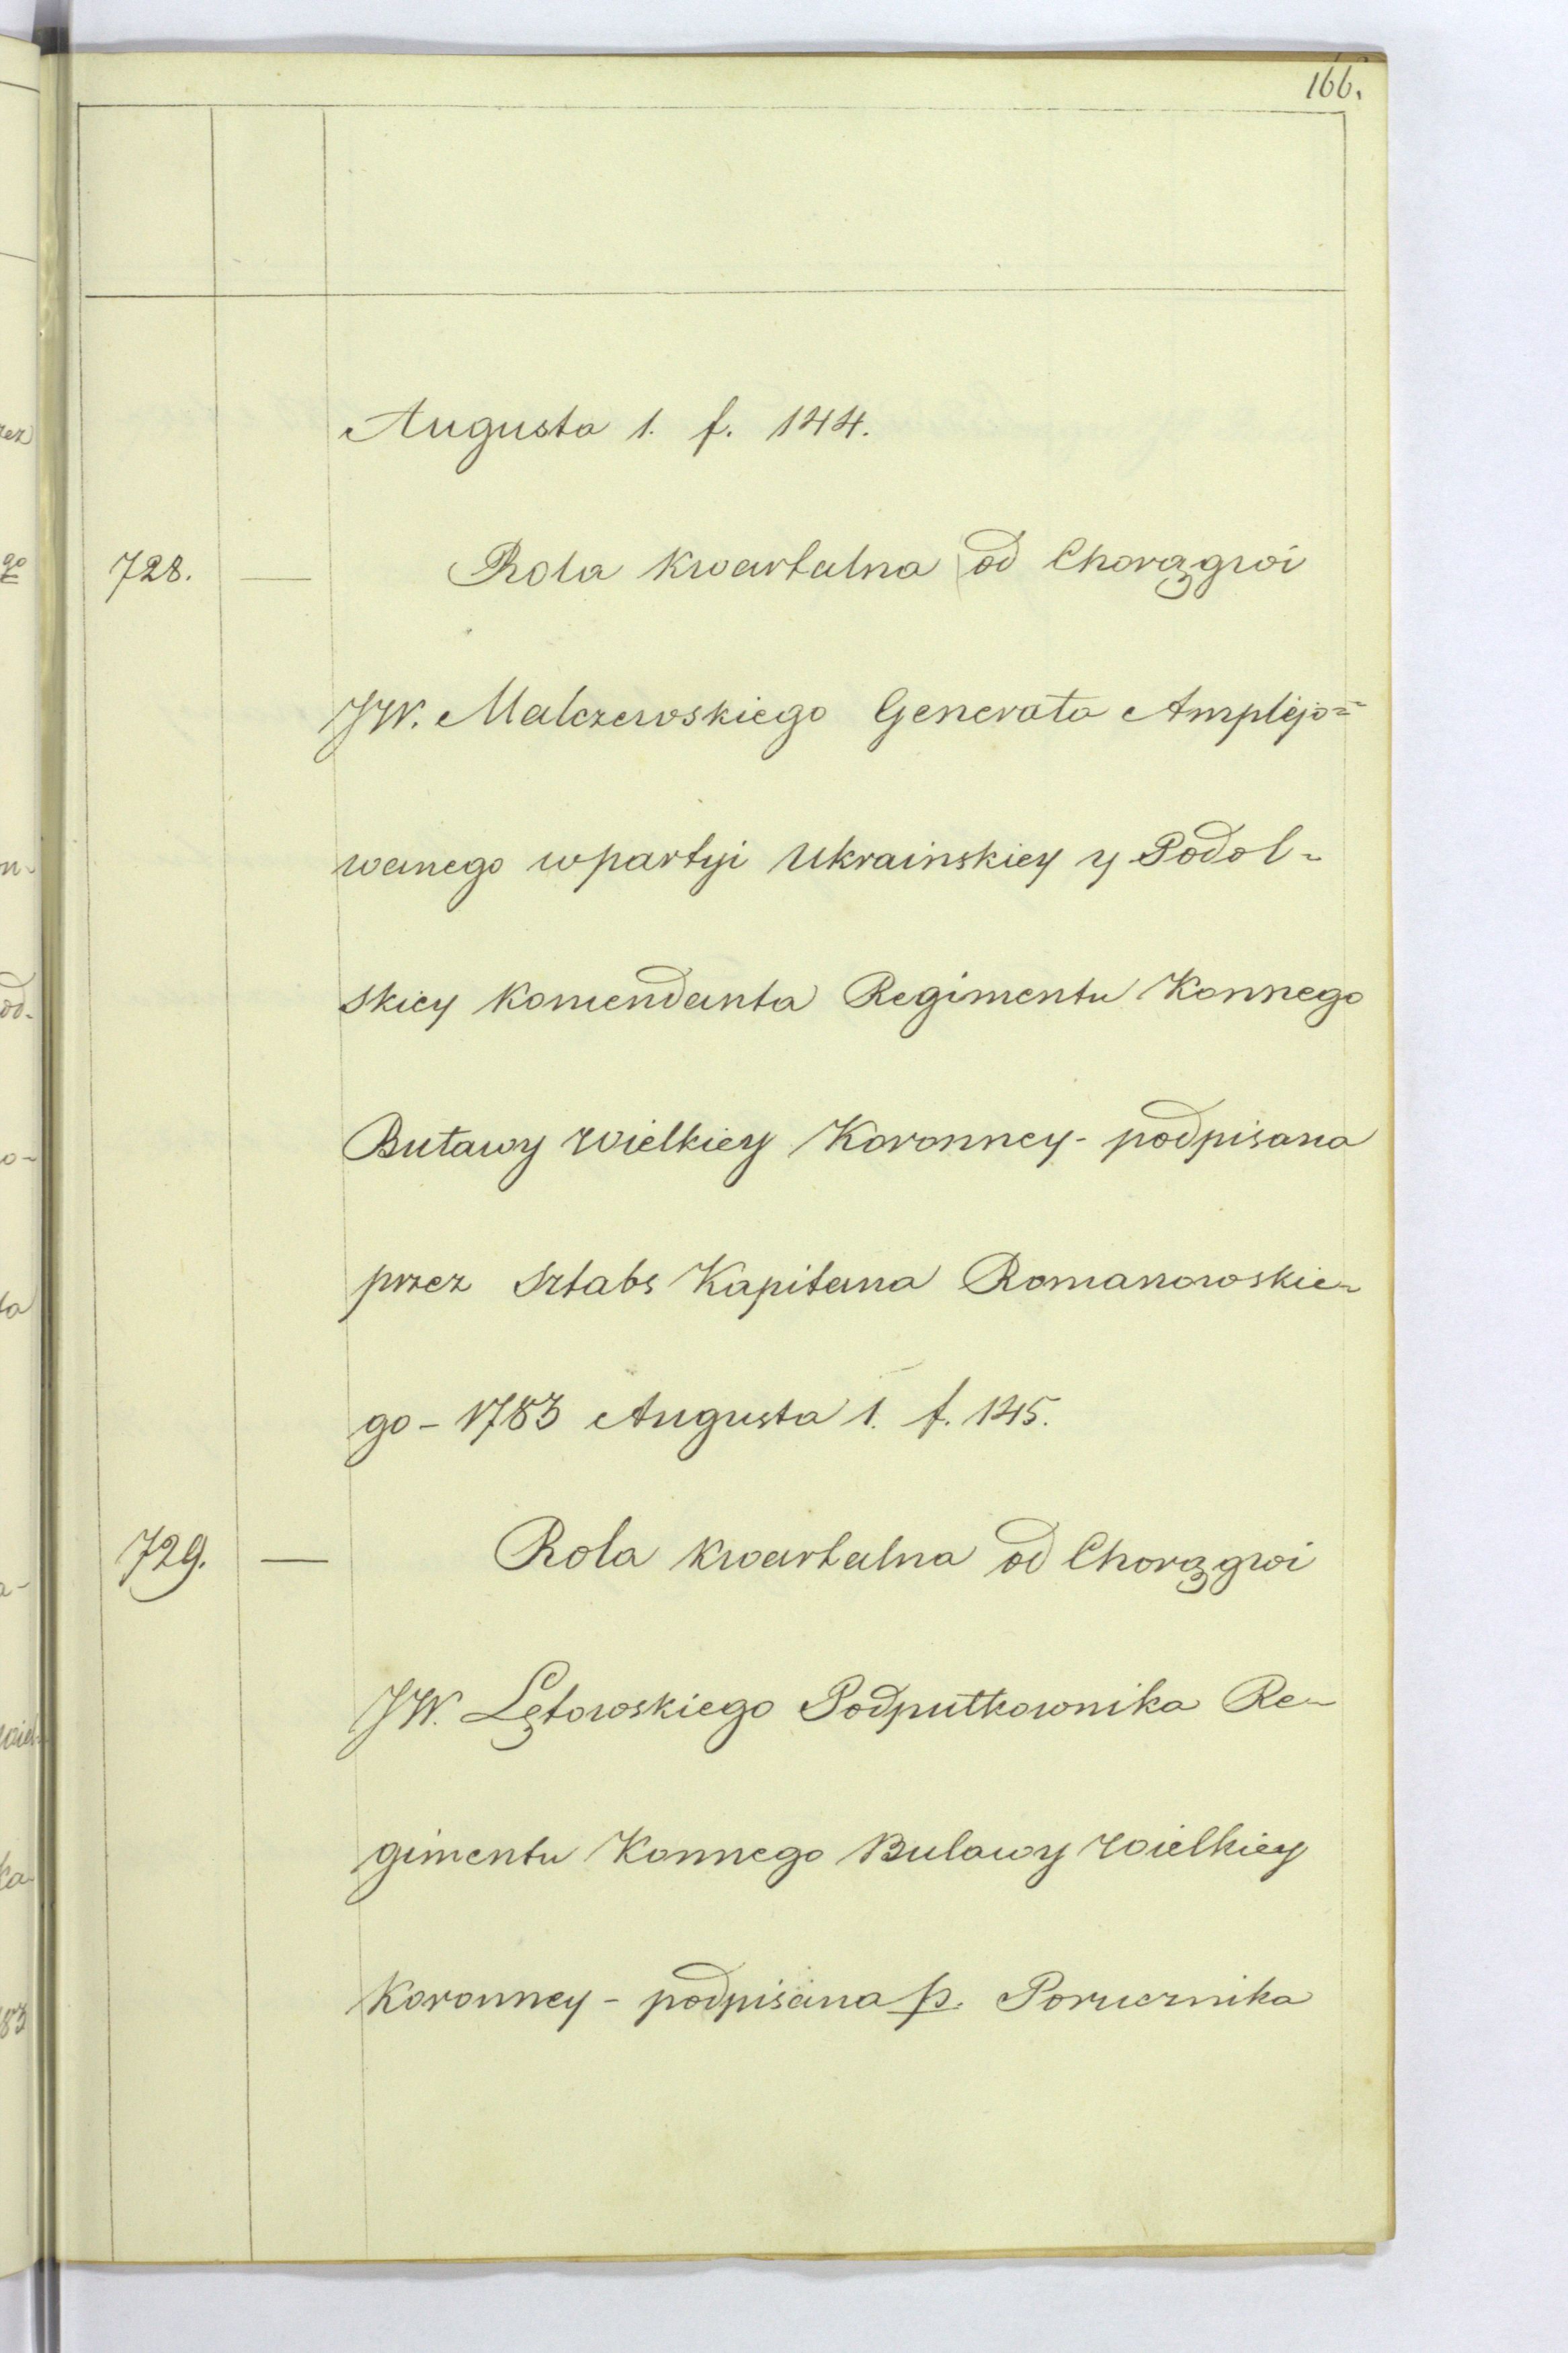 166.
Augusta 1. f. 144.
728. — Rola kwartalna od Chorągwi
JW. Malczewskiego Generała Amplejo=
wanego wpartyi Ukrainskiey y Podol-
skiey Komendanta Regimentu Konnego
Buławy Wielkiey Koronney - podpisana
przez Sztabs Kapitana Romanowskie-
go - 1783 Augusta 1. f. 145.
729. — Rola kwartalna od Chorągwi
JW. Lętowskiego Podpułkownika Re-
gimentu Konnego Bulawy Wielkiey
Koronney - podpisana p. Porucznika